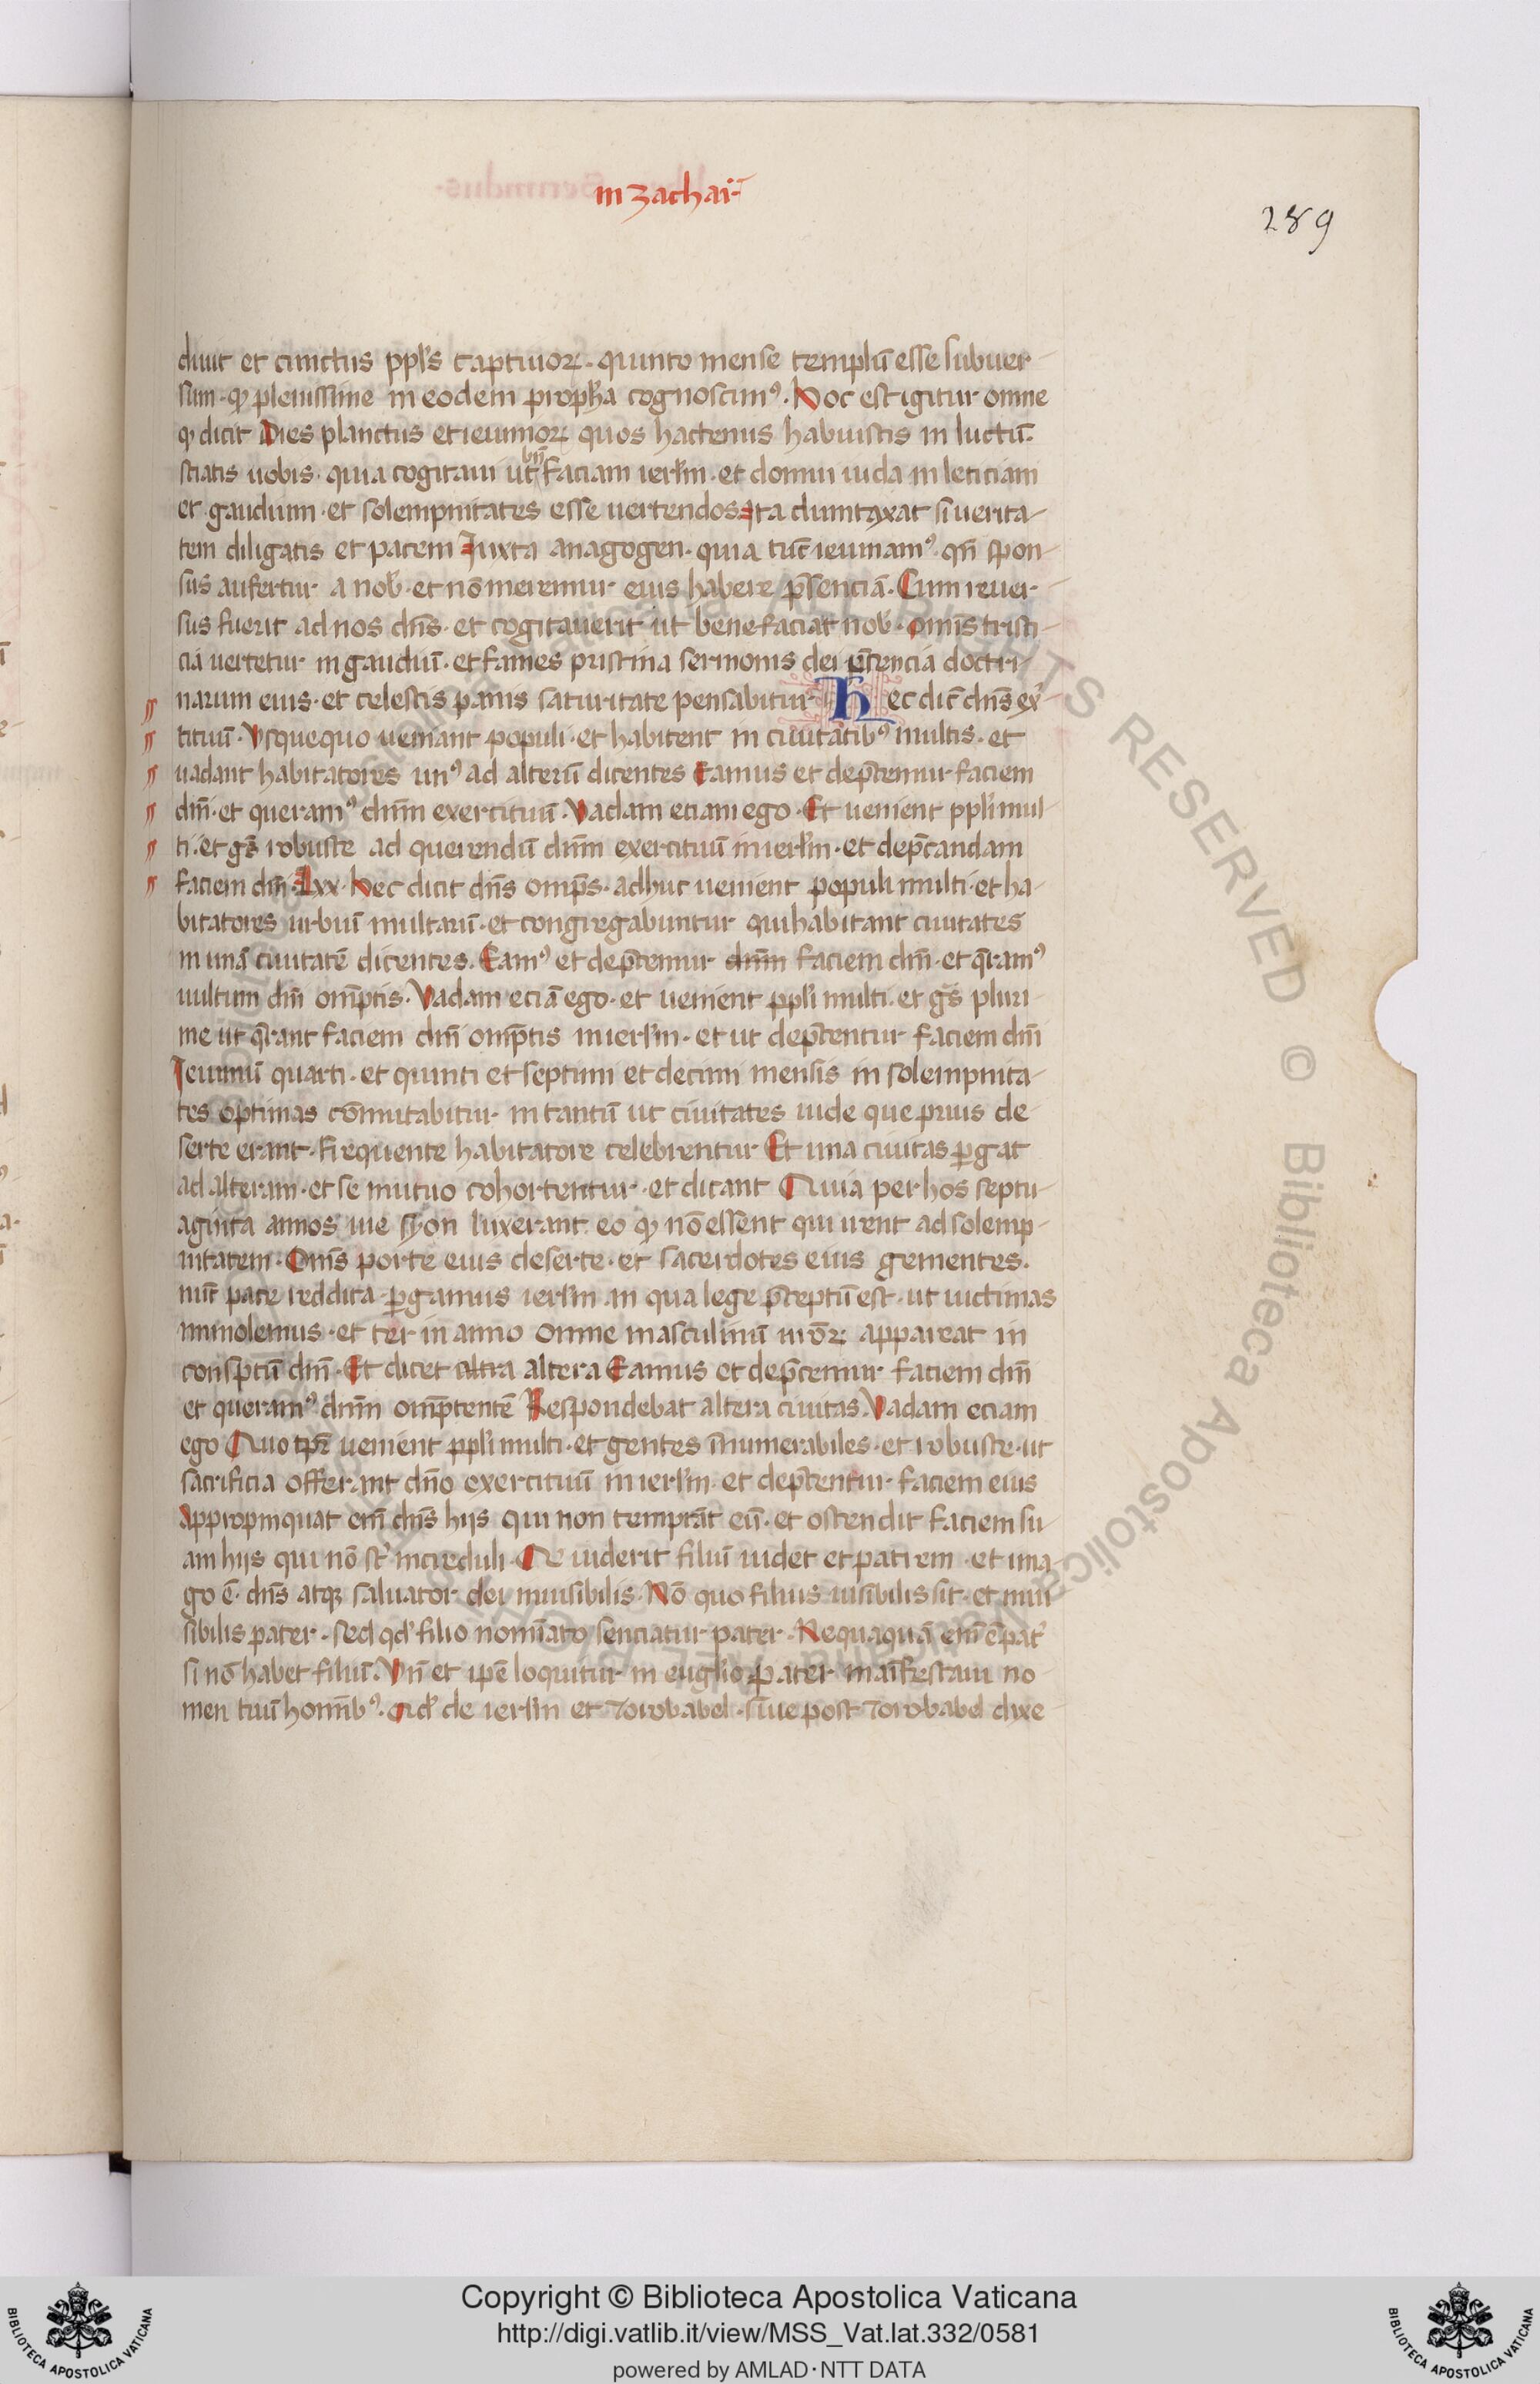 in zachaī
289
diuit et cunctus ppl's captiuoꝝ · quinto mense templū esse subuer-
sum · ꝙ plenissime in eodem proph̄a cognoscimꝰ. Hoc est igitur omne
ꝙ dicit Dies planctus et ieiunioꝝ quos hactenus habuistis in luctū.
sciatis uobis · quia cogitaui ut bn̄ faciam ierl'm · et domui iuda in leticiam
et gaudium · et solempnitates esse uertendos Ita dumtaxat si uerita-
tem diligatis et pacem Iuxta anagogen · quia tūc ieiunamꝰ · qn̄ spon-
sus aufertur a nob̄ · et nō meremur eius habere p̄senciā. Cum reuer-
sus fuerit ad nos dn̄s · et cogitauerit ut bene faciat nob̄ · Om̄is tristi-
cia uertetur in gaudiū · et fames pristina sermonis dei doctri-
narum eius · et celestis panis saturitate pensabitur Hec dic̄ dn̄s ex̄-
tituū · Vsquequo ueniant populi · et habitent in ciuitatibꝰ multis · et
uadant habitatores unꝰ ad alterū dicentes Eamus et dep̄cemur faciem
dn̄i · et queramꝰ dn̄m exercituū. Vadam eciam ego · Et uenient ppl'i mul-
ti · et gēs robuste ad querendū dn̄m exercituū in ierl'm · et dep̄candam
faciem dn̄i · Lxx · Hec dicit dn̄s omp̄s · adhuc uenient populi multi · et ha-
bitatores urbiū multarū · et congregabuntur qui habitant ciuitates
in unā ciuitatē dicentes. Eamꝰ et dep̄cemur dn̄m faciem dn̄i · et q̄ramꝰ
uultum dn̄i omp̄tis · Vadam eciā ego · et uenient ppl'i multi · et gēs pluri-
me ut q̄rant faciem dn̄i omp̄tis in ierl'm · et ut dep̄centur faciem dn̄i
Ieiuniū quarti · et quinti et septimi et decimi mensis in solempnita-
tes optimas cōmutabitur in tantū ut ciuitates iude que prius de-
serte erant · frequente habitatore celebrentur Et una ciuitas ꝑgat
ad alteram · et se mutuo cohortentur · et dicant Quia per hos septu-
aginta annos uie syon luxerant eo ꝙ nō essent qui irent ad solemp-
nitatem · Om̄s porte eius deserte · et sacerdotes eius gementes.
nūc pace reddita ꝑgamus ierl'm in qua lege p̄ceptū est · ut uictimas
immolemus · et ter in anno omne masculinū appareat in
consp̄tū dn̄i · Et dicet altra altera Eamus et dep̄cemur faciem dn̄i
et queramꝰ dn̄m omp̄tentē Respondebat altera ciuitas. Vadam eciam
ego Quo tp̄r uenient ppl'i multi · et gentes īnumerabiles · et robuste · ut
sacrificia offerant dn̄o exercituū in ierl'm · et dep̄centur faciem eius
Appropinquat em̄ dn̄s hijs qui non temptāt eū · et ostendit faciem su-
am hijs qui nō st̄ increduli · Qe uiderit filiū uidet et patrem · et ima-
go ē · dn̄s atqꝫ saluator dei inuisibilis · Nō quo filius uisibilis sit · et inui-
sibilis pater · sed qd' filio nomīato senciatur pater · Nequaquā em̄ ē pat̄
si nō habet filiū. Vn̄ et ipē loquitur in eugl'io Pater manifestaui no-
men tuū hominībꝰ. Qd' de ierl'm et Zorobabel · siue post Zorobabel dixe-
Copyright © Biblioteca Apostolica Vaticana
http://digi.vatlib.it/view/MSS_Vat.lat.332/0581
powered by AMLAD·NTT DATA